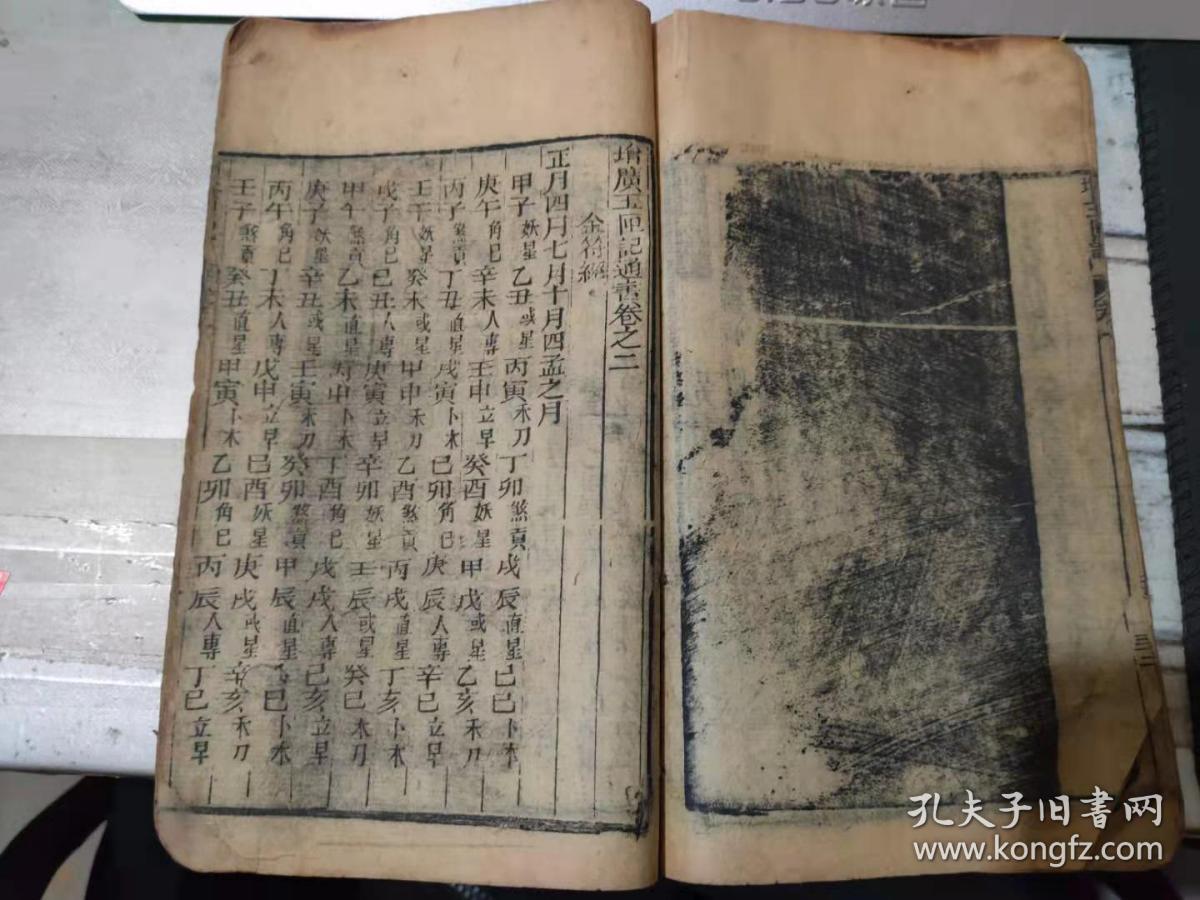 增廣玉匣記通書卷之二
金符經
正月四月七月十月四孟之月
甲子妖星 乙丑或星 丙寅禾刀 丁卯煞貢 戊辰直星 己巳卜木
庚午角己 辛未人專 壬申立早 癸酉妖星 甲戌或星 乙亥禾刀
丙子煞貢 丁丑直星 戊寅卜木 己卯角己 庚辰人專 辛巳立早
壬午妖星 癸未或星 甲申禾刀 乙酉煞貢 丙戌直星 丁亥卜木
戊子角己 己丑人專 庚寅立早 辛卯妖星 壬辰或星 癸巳禾刀
甲午煞貢 乙未直星 丙申卜木 丁酉角己 戊戌人專 己亥立早
庚子妖星 辛丑或星 壬寅禾刀 癸卯煞貢 甲辰直星 乙巳卜木
丙午角己 丁未人專 戊申立早 己酉妖星 庚戌或星 辛亥禾刀
壬子煞貢 癸丑直星 甲寅卜木 乙卯角己 丙辰人專 丁巳立早
孔夫子旧书网
www.kongfz.com